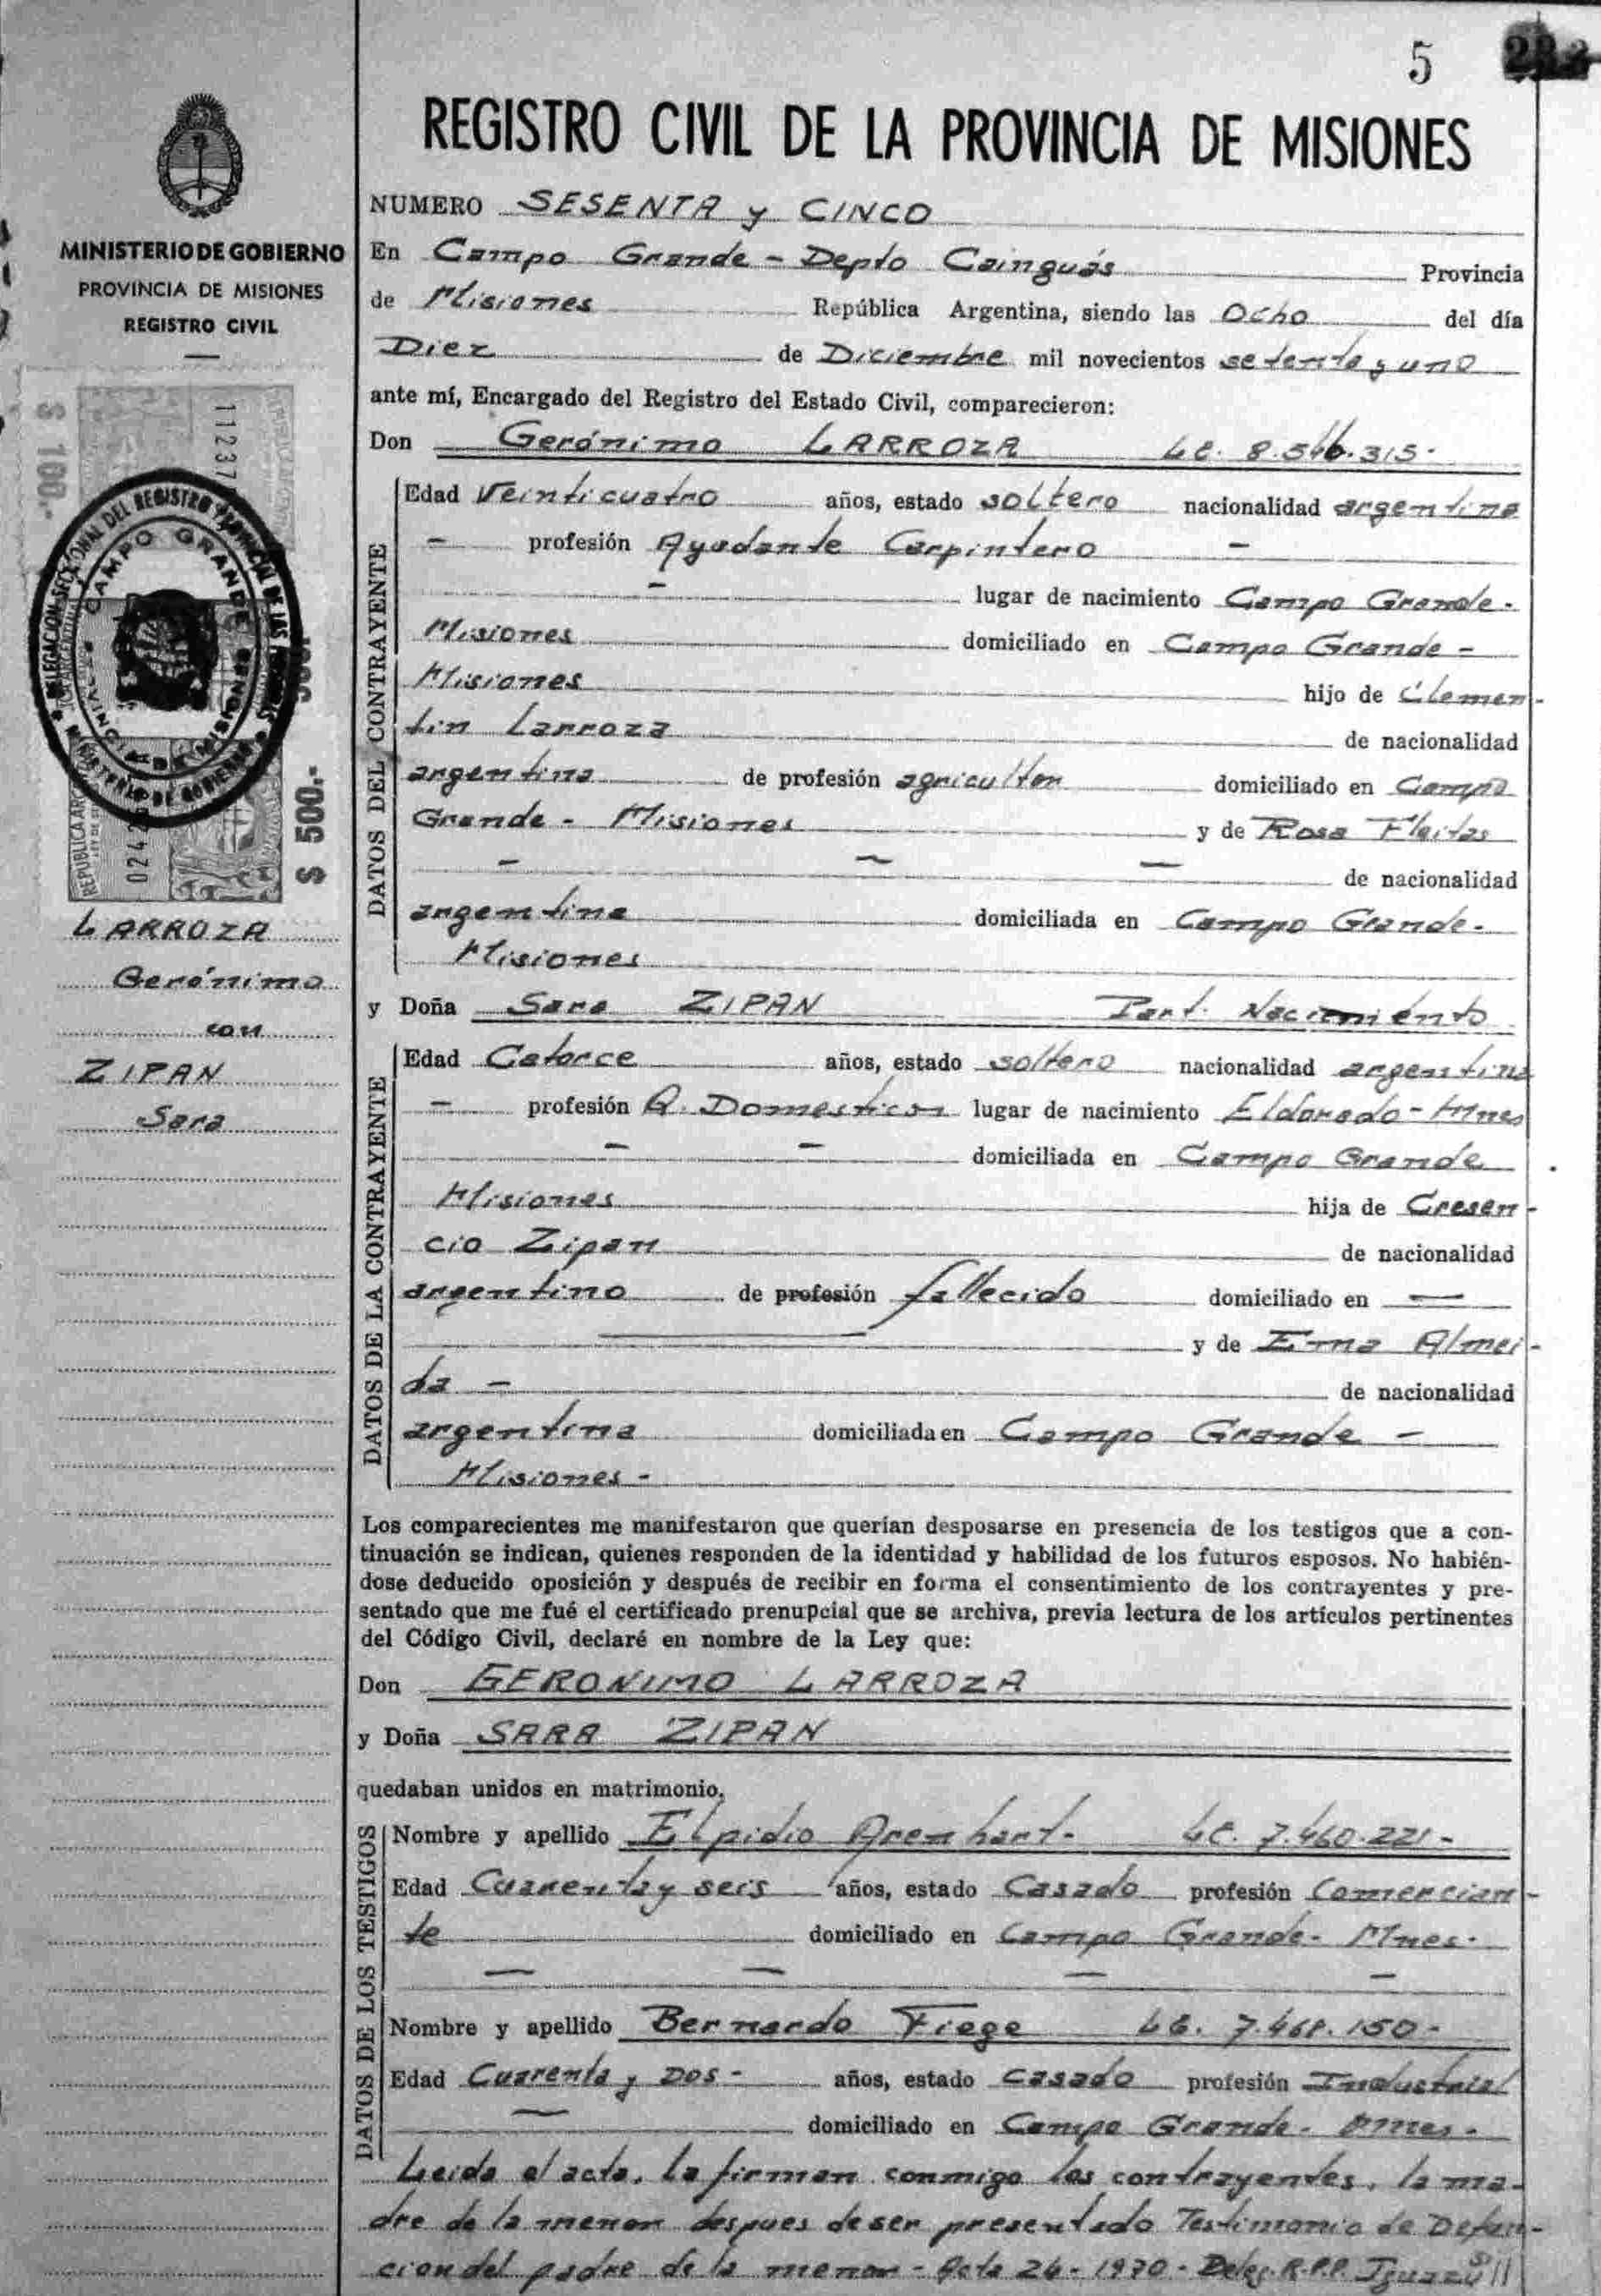 5
REGISTRO CIVIL DE LA PROVINCIA DE MISIONES
MINISTERIO DE GOBIERNO
PROVINCIA DE MISIONES
REGISTRO CIVIL
$ 100.-
11237
DELEGACION SECCIONAL DEL REGISTRO PROVINCIAL DE LAS PERSONAS
CAMPO GRANDE
MINISTERIO DE GOBIERNO
PROVINCIA DE MISIONES
REPUBLICA ARG
024
$ 500.-
LARROZA
Gerónimo
con
ZIPAN
Sara
NUMERO SESENTA y CINCO
En Campo Grande - Depto Cainguás Provincia
de Misiones República Argentina, siendo las Ocho del día
Diez de Diciembre mil novecientos setenta y uno
ante mí, Encargado del Registro del Estado Civil, comparecieron:
Don Gerónimo LARROZA LE. 8.546.315-
DATOS DEL CONTRAYENTE
Edad Veinticuatro años, estado soltero nacionalidad argentina
- profesión Ayudante Carpintero -
- lugar de nacimiento Campo Grande-
Misiones domiciliado en Campo Grande -
Misiones hijo de Clemen-
tin Larroza de nacionalidad
argentina de profesión agricultor domiciliado en Campo
Grande - Misiones y de Rosa Fleitas
- - - de nacionalidad
argentina domiciliada en Campo Grande-
Misiones
y Doña Sara ZIPAN Part. Nacimiento
DATOS DE LA CONTRAYENTE
Edad Catorce años, estado soltero nacionalidad argentina
- profesión Q. Domesticos lugar de nacimiento Eldorado - Mnes
- - domiciliada en Campo Grande
Misiones hija de Cresen-
cio Zipan de nacionalidad
argentino de profesión fallecido domiciliado en -
y de Erna Almei-
da - de nacionalidad
argentina domiciliada en Campo Grande -
Misiones -
Los comparecientes me manifestaron que querían desposarse en presencia de los testigos que a con-
tinuación se indican, quienes responden de la identidad y habilidad de los futuros esposos. No habién-
dose deducido oposición y después de recibir en forma el consentimiento de los contrayentes y pre-
sentado que me fué el certificado prenupcial que se archiva, previa lectura de los artículos pertinentes
del Código Civil, declaré en nombre de la Ley que:
Don GERONIMO LARROZA
y Doña SARA ZIPAN
quedaban unidos en matrimonio.
DATOS DE LOS TESTIGOS
Nombre y apellido Elpidio Arenhart- LE. 7.460.221-
Edad Cuarenta y seis años, estado Casado profesión Comercian-
te domiciliado en Campo Grande- Mnes-
- - - -
Nombre y apellido Bernardo Fiege LE. 7.468.150-
Edad Cuarenta y Dos - años, estado Casado profesión Industrial
- domiciliado en Campo Grande- Mnes-
Leida el acta, la firman conmigo los contrayentes, la ma-
dre de la menor despues de ser presentado Testimonio de Defun-
cion del padre de la menor - Acta 26 - 1970 - Deleg. R.P.P. Iguazú